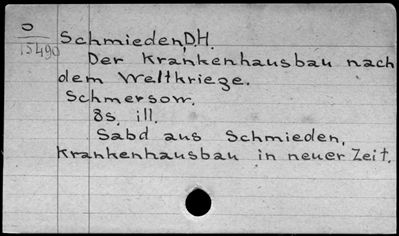 O
15490
Schmieden, D.H.
Der Krankenhausbau nach
dem Weltkriege.
Schmersow.
8s. ill.
Sabd aus Schmieden,
Krankenhausbau in neuer Zeit.